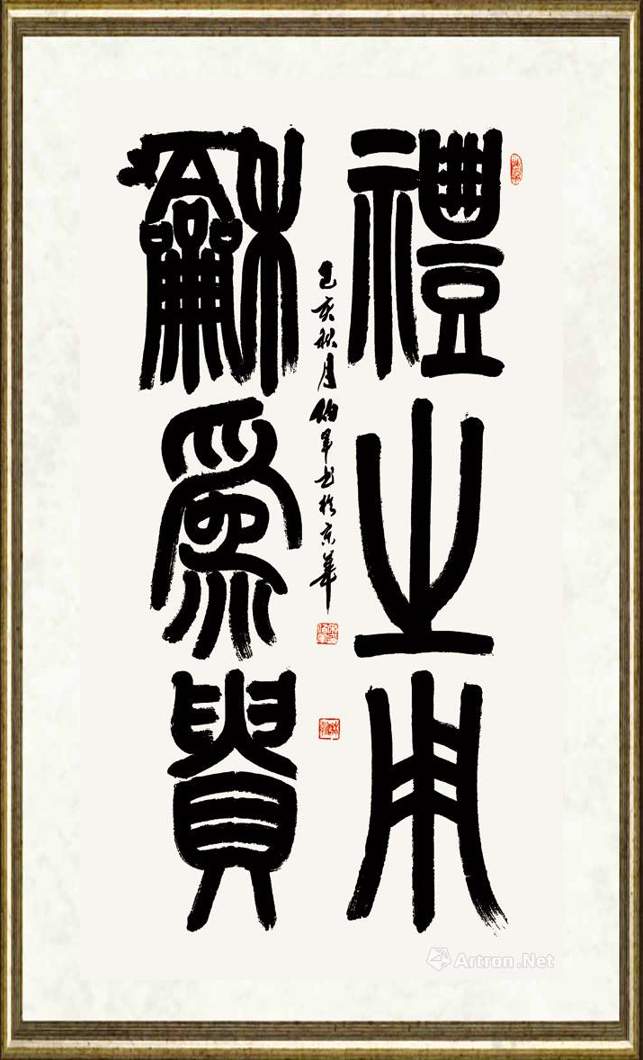 禮之用
龢為貴
己亥秋月伯军书於京華
Artron.Net